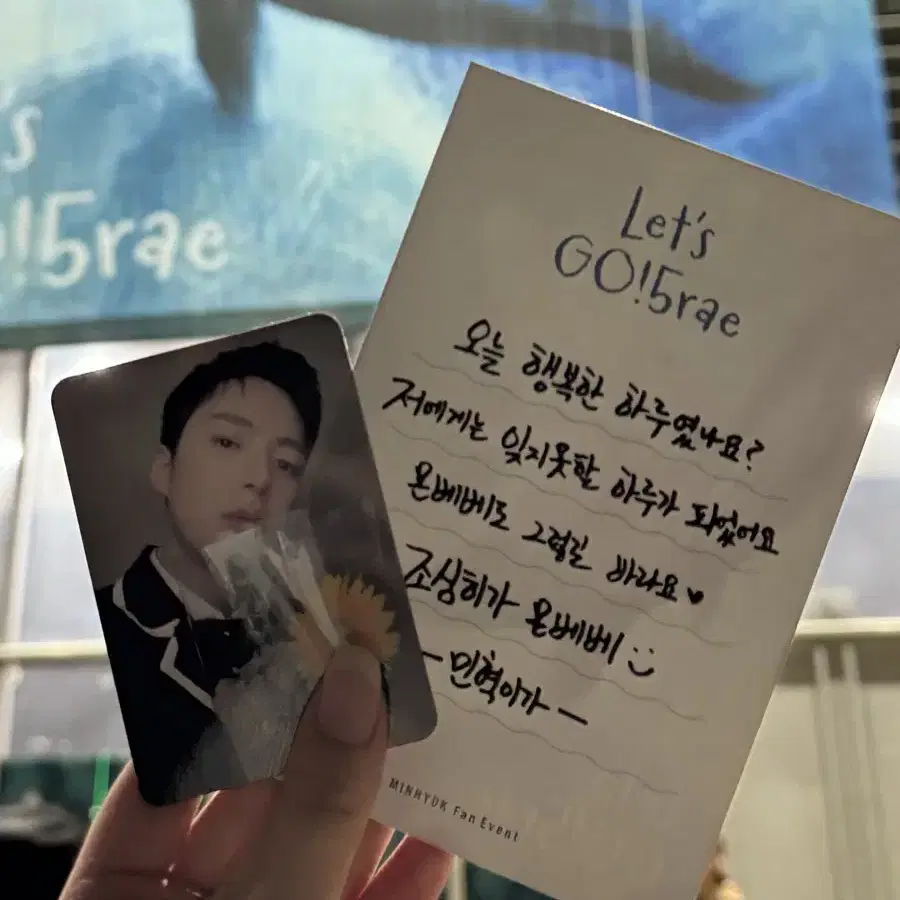 s
!5rae
Let's
GO!5rae
오늘 행복한 하루였나요?
저에게는 잊지못할 하루가 되었어요
몬베베도 그랬길 바라요♥
조심히가 몬베베 :)
-민혁이가-
MINHYUK Fan Event